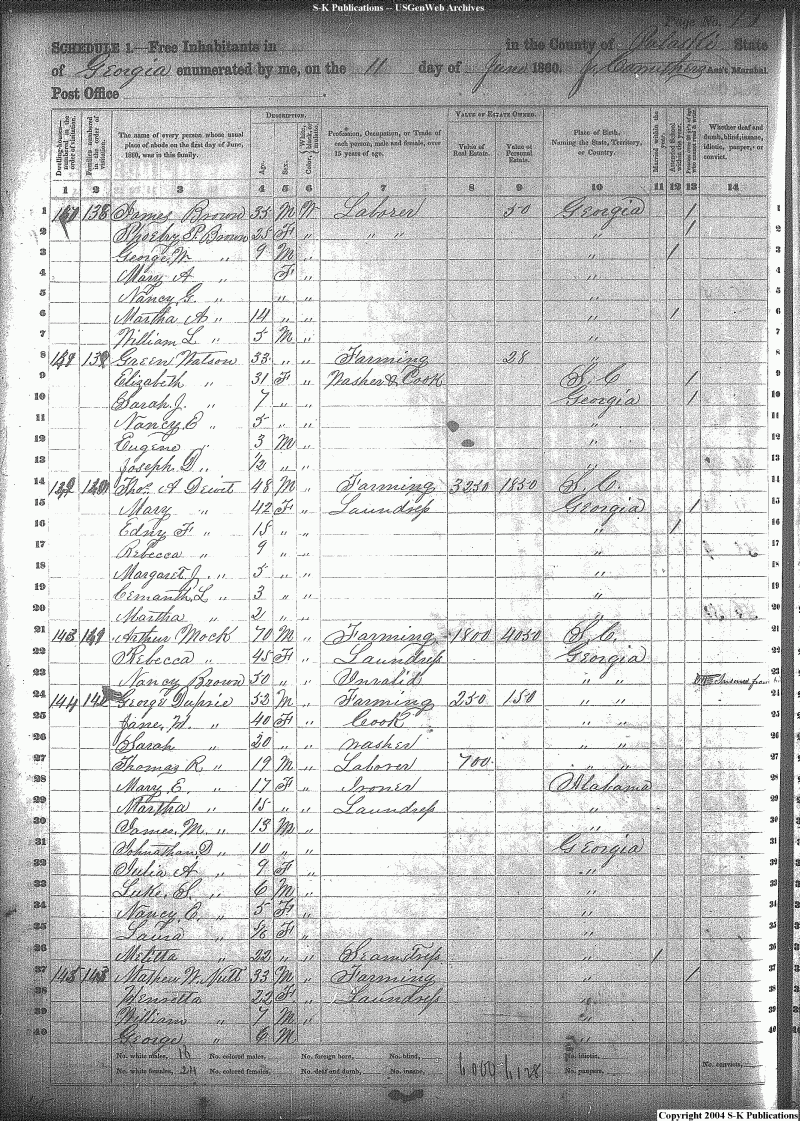 S-K Publications -- USGenWeb Archives
Page No.
SCHEDULE 1.—Free Inhabitants in in the County of Pulaski State
of Georgia enumerated by me, on the 11 day of June 1860. Ass't Marshal
Post Office
DESCRIPTION. VALUE OF ESTATE OWNED.
Dwelling-houses—numbered in the order of visitation. Families numbered in the order of visitation. The name of every person whose usual place of abode on the first day of June, 1860, was in this family. Age. Sex. Color, White, black, or mulatto. Profession, Occupation, or Trade of each person, male and female, over 15 years of age. Value of Real Estate. Value of Personal Estate. Place of Birth, Naming the State, Territory, or Country. Married within the year. Attended School within the year. Persons over 20 y'rs of age who cannot read & write. Whether deaf and dumb, blind, insane, idiotic, pauper, or convict.
1 2 3 4 5 6 7 8 9 10 11 12 13 14
1 138 James Brown 35 M W Laborer 50 Georgia / 1
2 Phoeby P. Brown 25 F " " " " / 2
3 George W. " 9 M " " / 3
4 Mary A F " " 4
5 Nancy G. " " " " 5
6 Martha A " 14 " " " / 6
7 William L " 5 M " " 7
8 139 Green Watson 33 " " Farming 28 " 8
9 Elizabeth " 31 F " Washer & Cook S. C. / 9
10 Sarah J. " 7 " " Georgia / 10
11 Nancy E " 5 " " " 11
12 Eugene " 3 M " " 12
13 Joseph D " " " " 13
14 Tho. A Dewit 48 M " Farming 3250 1850 S. C. 14
15 Mary " 42 F " Laundress Georgia / 15
16 Edny F " 15 " " " / 16
17 Rebecca " 9 " " " 17
18 Margaret J. " 5 " " " 18
19 L " 3 " " " 19
20 Martha " 2 " " " 20
21 143 141 Arthur Mock 70 M " Farming 1800 4050 S. C. 21
22 Rebecca " 45 F " Laundress Georgia 22
23 Nancy Brown 30 " " Invalid " " 23
24 144 142 George Duprie 52 M " Farming 250 150 " " 24
25 Jane, H. " 40 F " Cook " " 25
26 Sarah " 20 " " Washer " " 26
27 Thomas R " 19 M " Laborer 700 " " 27
28 Mary E. " 17 F " Ironer Alabama 28
29 Martha " 15 " " Laundress " 29
30 James, M. " 13 M " " 30
31 Johnathan D " 10 " " Georgia 31
32 Julia A " 9 F " " 32
33 Luke, S. " 6 M " " 33
34 Nancy, C. " 5 F " " 34
35 Laura " F " " 35
36 Meletta " 22 " " Seamstress " / 36
37 145 143 Mathew W. Nutt 33 M " Farming " / 37
38 Henretta 22 F " Laundress " 38
39 William " 7 M " " 39
40 George " 6 M " 40
No. white males, 16 No. colored males, No. foreign born, No. blind, No. idiotic,
No. white females, 24 No. colored females, No. deaf and dumb, No. insane, 6000 6128 No. paupers, No. convicts,
Copyright 2004 S-K Publications